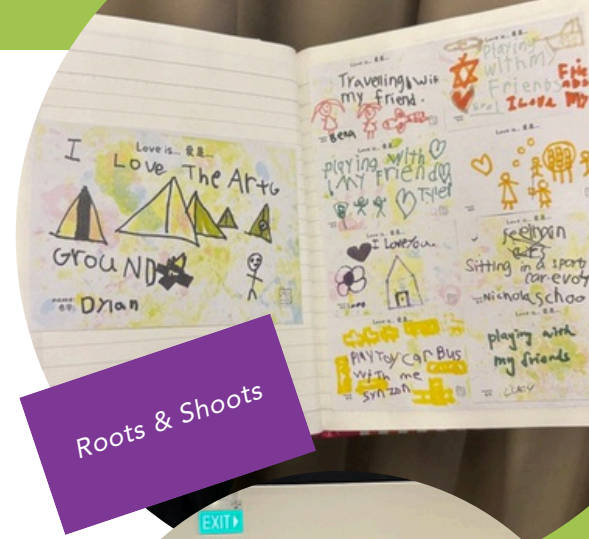 Love is... 愛是...
I
LOVE The Arts
GROUND
Dylan
Love is... 愛是...
Travelling with
my friend.
Bena
Love is... 愛是...
playing
with my
Friends
I Love My
playing with
my friend
Tyler
Love is... 愛是...
I Love You.
Love is... 愛是...
Sitting in a sport
car
Nichola school
Love is... 愛是...
PlAY Toy car Bus
with me
Love is... 愛是...
playing with
my friends
Lucy
Roots & Shoots
EXIT